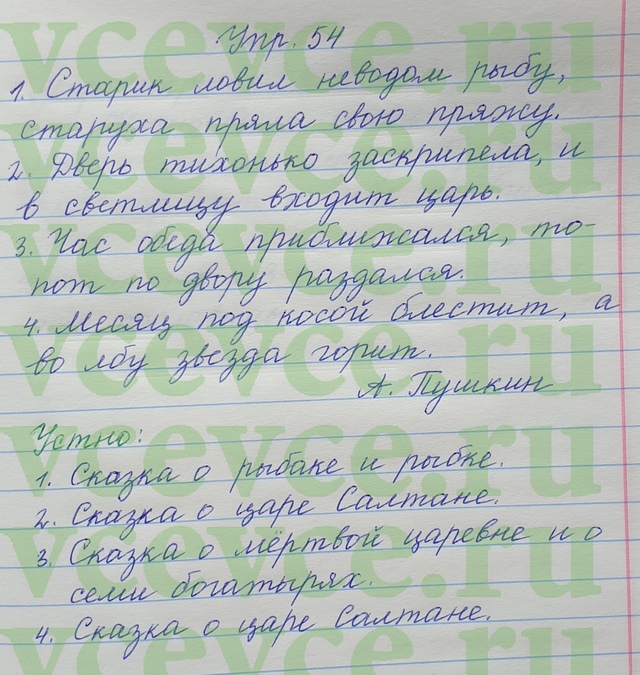 Упр. 54
1. Старик ловил неводом рыбу,
старуха пряла свою пряжу.
2. Дверь тихонько заскрипела, и
в светлицу входит царь.
3. Час обеда приближался, то-
пот по двору раздался.
4. Месяц под косой блестит, а
во лбу звезда горит.
А. Пушкин
Устно:
1. Сказка о рыбаке и рыбке.
2. Сказка о царе Салтане.
3. Сказка о мёртвой царевне и о
семи богатырях.
4. Сказка о царе Салтане.
vcevce.ru
vcevce.ru
vcevce.ru
vcevce.ru
vcevce.ru
vcevce.ru
vcevce.ru